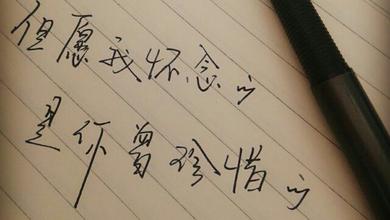 但愿我怀念的
是你曾珍惜的